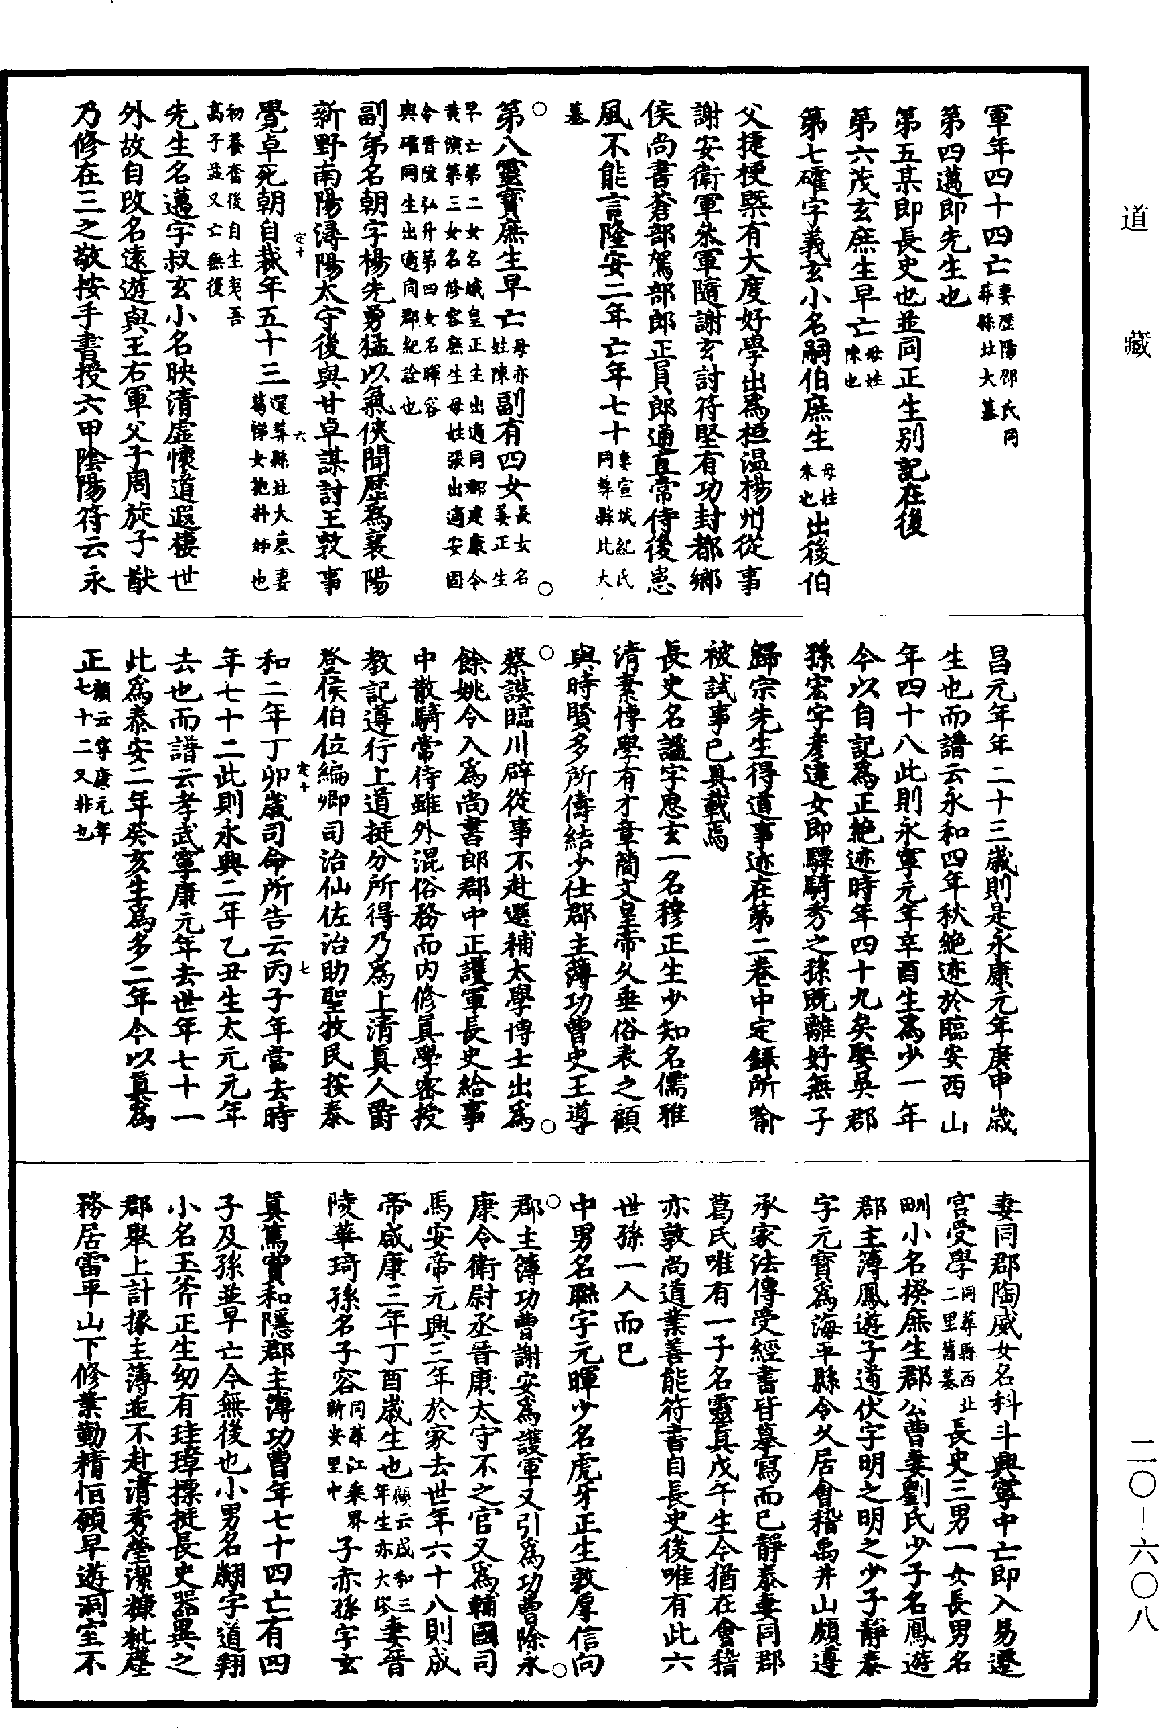 軍年四十四亡妻歷陽邵氏同葬縣北大墓
第四邁即先生也
第五某即長史也並同正生別記在後
第六茂玄庶生早亡母姓陳也
第七確字義玄小名嗣伯庶生母姓朱也出後伯
父捷梗槩有大度好學出為桓温楊州從事
謝安衛軍叅軍隨謝玄討符堅有功封都鄉
侯尚書蒼部駕部郎正員郎通直常侍後患
風不能言隆安二年亡年七十妻宣城紀氏同葬縣北大
墓
第八靈寶庶生早亡母亦姓陳副有四女長女名姜正生
早亡第二女名娥皇正生出適同郡建康令
黃演第三女名脩容無生母姓張出適安固
令晉陵弘升第四女名暉容
與確同生出適同郡紀詮也
副弟名朝字楊先勇猛以氣俠聞歷為襄陽
新野南陽潯陽太守後與甘卓謀討王敦事
覺卓死朝自裁年五十三還葬縣北大墓妻葛悌女抱朴姊也
初養奮後自生夷吾
高子並又亡無後
先生名邁字叔玄小名映清虛懷道遐棲世
外故自改名遠遊與王右軍父子周旋子猷
乃修在三之敬按手書授六甲陰陽符云永
昌元年年二十三歲則是永康元年庚申歲
生也而譜云永和四年秋絶迹於臨安西山
年四十八此則永寧元年辛酉生為少一年
今以自記為正絶迹時年四十九矣娶吳郡
孫宏字彥達女即驃騎秀之孫既離好無子
歸宗先生得道事迹在第二卷中定録所喻
被試事已具載焉
長史名謐字思玄一名穆正生少知名儒雅
清素博學有才章簡文皇帝久垂俗表之顧
與時賢多所儔結少仕郡主簿功曹史王導
蔡謨臨川辟從事不赴選補太學博士出為
餘姚令入為尚書郎郡中正護軍長史給事
中散騎常侍雖外混俗務而內修真學密授
教記遵行上道挺分所得乃為上清真人爵
登侯伯位編卿司治仙佐治助聖牧民按泰
和二年丁卯歲司命所告云丙子年當去時
年七十二此則永興二年乙丑生太元元年
去也而譜云孝武寧康元年去世年七十一
此為泰安二年癸亥生為多二年今以真為
正顧云寧康元年七十二又非也
妻同郡陶威女名科斗興寧中亡即入易遷
宮受學同葬縣西北二里舊墓長史三男一女長男名
甽小名揆庶生郡公曹妻劉氏少子名鳳遊
郡主簿鳳遊子道伏字明之明之少子靜泰
字元寶為海平縣令久居會稽禹井山頗遵
承家法傳受經書皆摹寫而已靜泰妻同郡
葛氏唯有一子名靈真戊午生今猶在會稽
亦敦尚道業善能符書自長史後唯有此六
世孫一人而已
中男名聯字元暉少名虎牙正生敦厚信向
郡主簿功曹謝安為護軍又引為功曹除永
康令衛尉丞晉康太守不之官又為輔國司
馬安帝元興三年於家去世年六十八則成
帝咸康三年丁酉歲生也顧云咸和三年生亦大塔妻晉
陵華琦孫名子容同葬江乘界新安里中子赤孫字玄
真篤實和隱郡主簿功曹年七十四亡有四
子及孫並早亡今無後也小男名翽字道翔
小名玉斧正生幼有珪璋摽挺長史器異之
郡舉上計掾主簿並不赴清秀瑩潔糠粃塵
務居雷平山下修業勤精恒願早遊洞室不
道藏
二〇—六〇八
定十
六
定十
七